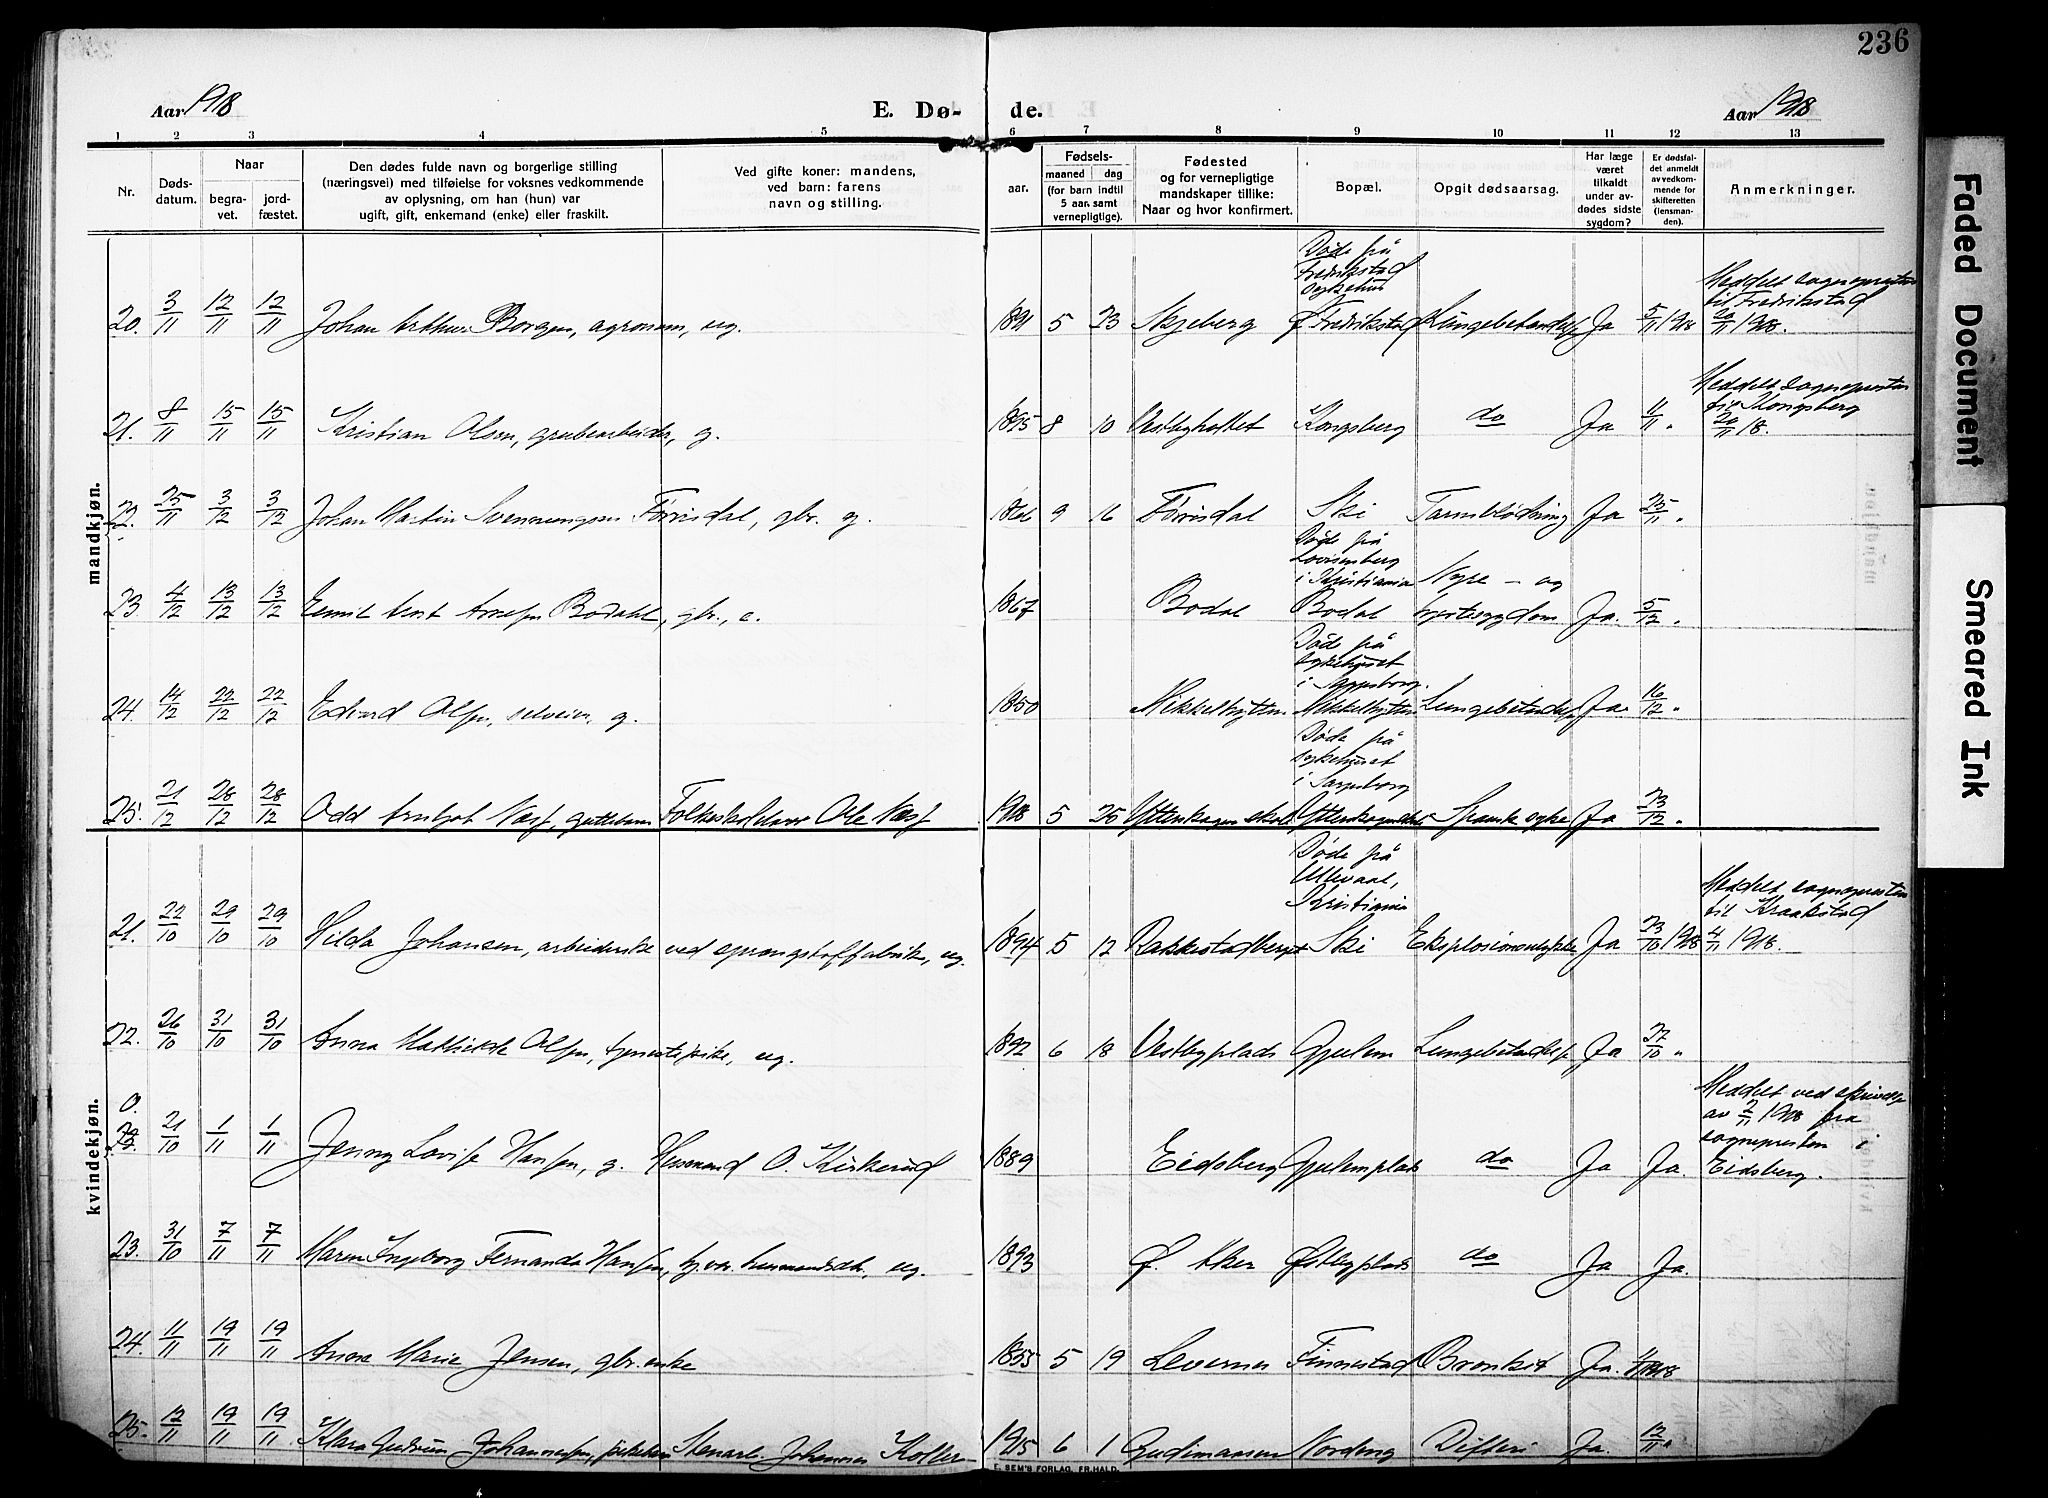 236
Aar 1918
E. Dø- de.
Aar 1918
1 2 3 4 5 6 7 8 9 10 11 12 13
Nr.
Døds-
datum.
Naar
begra-
vet.
jord-
fæstet.
Den dødes fulde navn og borgerlige stilling
(næringsvei) med tilføielse for voksnes vedkommende
av oplysning, om han (hun) var
ugift, gift, enkemand (enke) eller fraskilt.
Ved gifte koner: mandens,
ved barn: farens
navn og stilling.
Fødsels-
aar.
maaned dag
(for barn indtil
5 aar. samt
vernepligtige).
Fødested
og for vernepligtige
mandskaper tillike:
Naar og hvor konfirmert.
Bopæl.
Opgit dødsaarsag.
Har læge
været
tilkaldt
under av-
dødes sidste
sygdom?
Er dødsfal-
det anmeldt
av vedkom-
mende for
skifteretten
(lensman-
den).
Anmerkninger.
mandkjøn.
Døde på
Fredrikstad
sykehus
Meddelt sognepresten
til Fredrikstad
20/11 1918.
20. 3/11 12/11 12/11 Johan Arthur Borgen, agronom, ug. 1891 5 23 Skjeberg Fredrikstad Lungebetændelse Ja 5/11 1918
Meddelt sognepresten
til Kongsberg
20/11 18.
21. 8/11 15/11 15/11 Kristian Olsen, grubearbeider, g. 1895 8 10 Vestbyholtet Kongsberg do Ja 11/11 "
22. 25/11 3/12 3/12 Johan Martin Svenningsen Førrisdal, gbr. g. 9 16 Førrisdal Ski Tarmblødning Ja 25/11 "
Døde på
Lovisenberg
i Kristiania
23 4/12 13/12 13/12 Emil Arnt Arnesen Bodahl, gbr., e. 1867 Bodal Bodal Nyre- og
hjertesygdom Ja. 5/12 "
Døde på
sykehuset
i Sarpsborg.
24. 14/12 22/12 22/12 Edvard Olsen, selveier, g. 1850 Mikkelhytten Mikkelhytten Lungebetændelse Ja. 16/12 "
Døde på
sykehuset
i Sarpsborg
25. 21/12 28/12 28/12 Odd Arnljot Næss, guttebarn Folkeskolelærer Ole Næss 1918 5 25 Ytterskogen skole Spanske syke Ja 23/12 "
kvindekjøn.
Døde på
Ullevaal,
Kristiania
Meddelt sognepresten
til Kraakstad
4/11 1918.
21. 22/10 29/10 29/10 Hilda Johansen, arbeiderske ved sprængstoffabrikk, ug. 1894 5 12 Rakkestadberget Ski Eksplosionsulykke Ja 23/10 1918
22. 26/10 31/10 31/10 Anna Mathilde Olsen, tjenestepike, ug. 1892 6 18 Vestbyplads Gjulem Lungebetændelse Ja 27/10 "
Meddelt ved skrivelse
av 2/11 1918 fra
sognepresten i
Eidsberg.
0. 21/10 1/11 1/11 Jenny Lovise Hansen, g. Husmand O. Kirkerud 1889 Eidsberg Gjulemplads do Ja Ja.
23. 31/10 7/11 7/11 Maren Ingeborg Fernanda Hansen, hj.vær. husmandsdtr., ug. 1893 Ø. Aker Østbyplads do Ja Ja.
24. 11/11 19/11 19/11 Anne Marie Jensen, gbr. enke 1855 5 19 Levernes Finnestad Bronkit Ja.
25. 12/11 19/11 19/11 Klara Gudrun Johannessen, pikebarn Stenarb. Johannes Koller 1915 6 1 Gudimansen Nordeng Difteri Ja. 12/11 "
E. SEM'S FORLAG, FR.HALD.
Faded Document
Smeared Ink